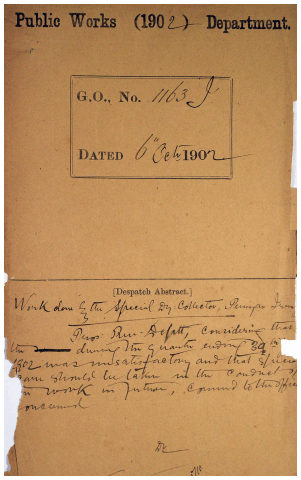 Public Works (1902) Department.
G.O., No. 1163 I
DATED 6th Octr 1902
[Despatch Abstract.]
Work done by the Special Dy. Collector,
considering that
the during the quarter ending 30th
1902 was unsatisfactory and that special
care should be taken in the conduct of
work in future,
concerned